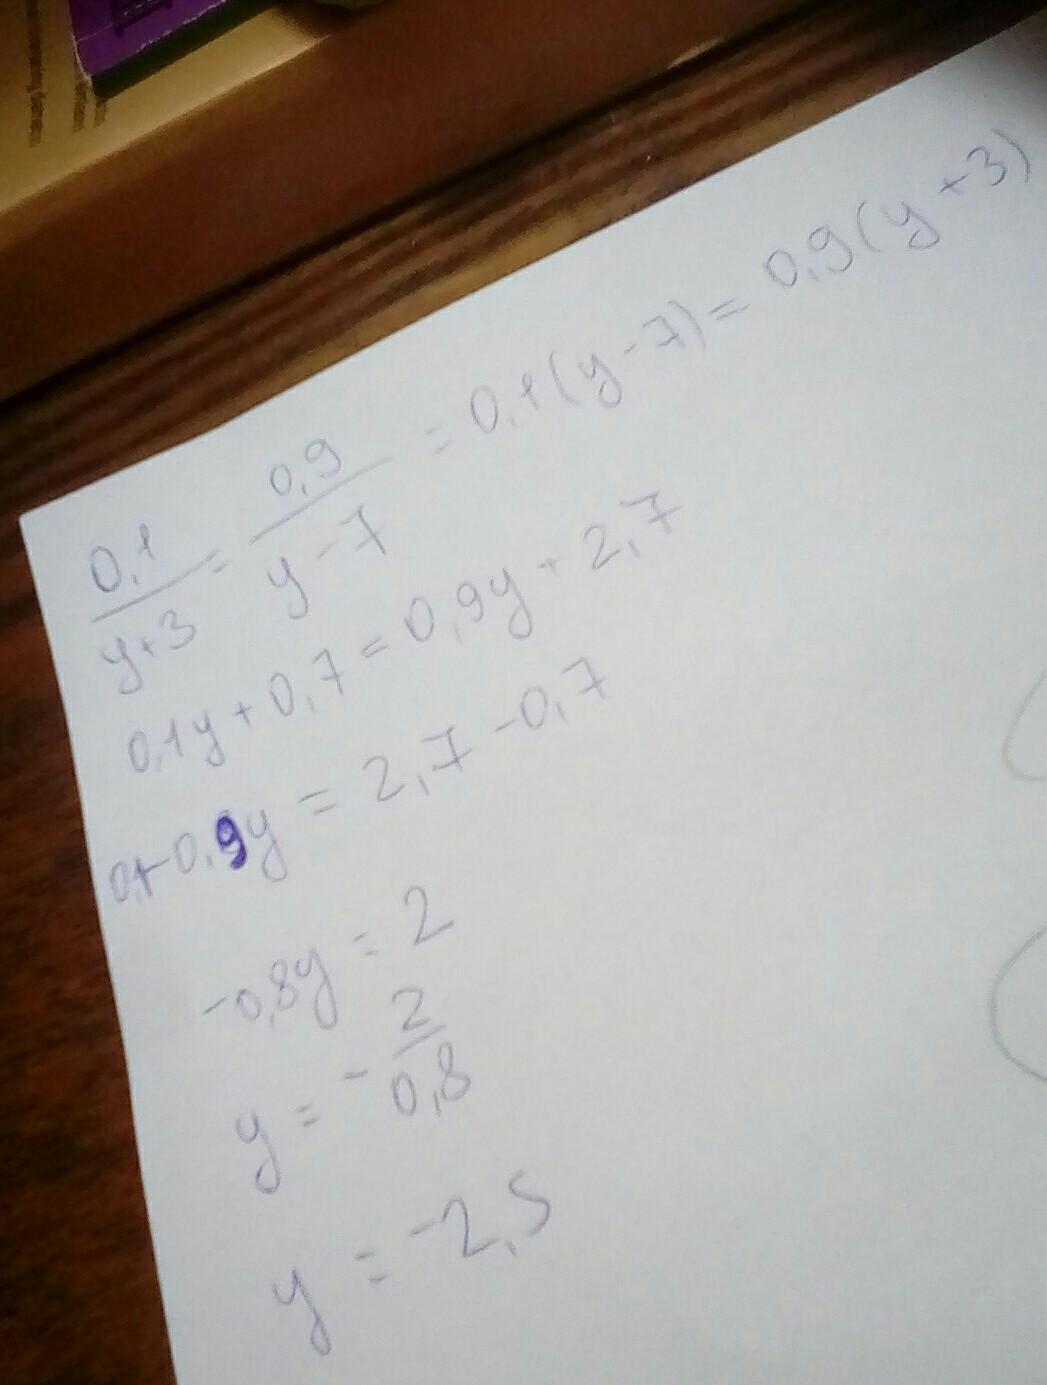 0,1/(y+3) = 0,9/(y-7) = 0,1(y-7) = 0,9(y+3)
0,1y + 0,7 = 0,9y + 2,7
0,1-0,9y = 2,7 - 0,7
-0,8y = 2
y = - 2/0,8
y = -2,5